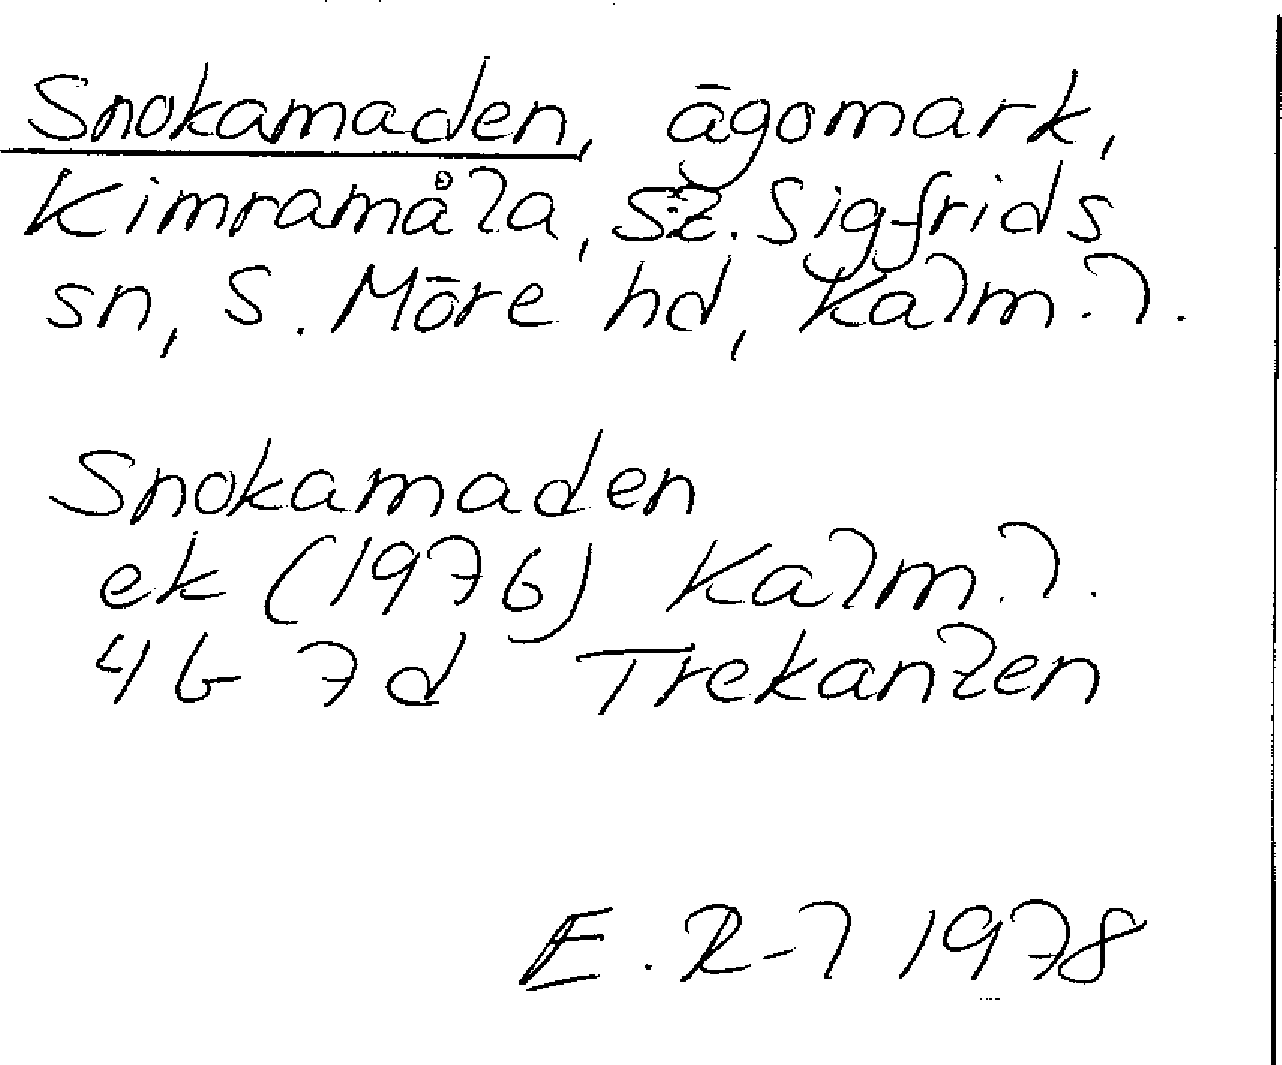 Snokamaden, ägomark,
Kimramåla, S:t. Sigfrids
sn, S. Möre hd, Kalm. l.
Snokamaden
ek (1976) Kalm. l.
4G 7d Trekanten
E. R-l 1978